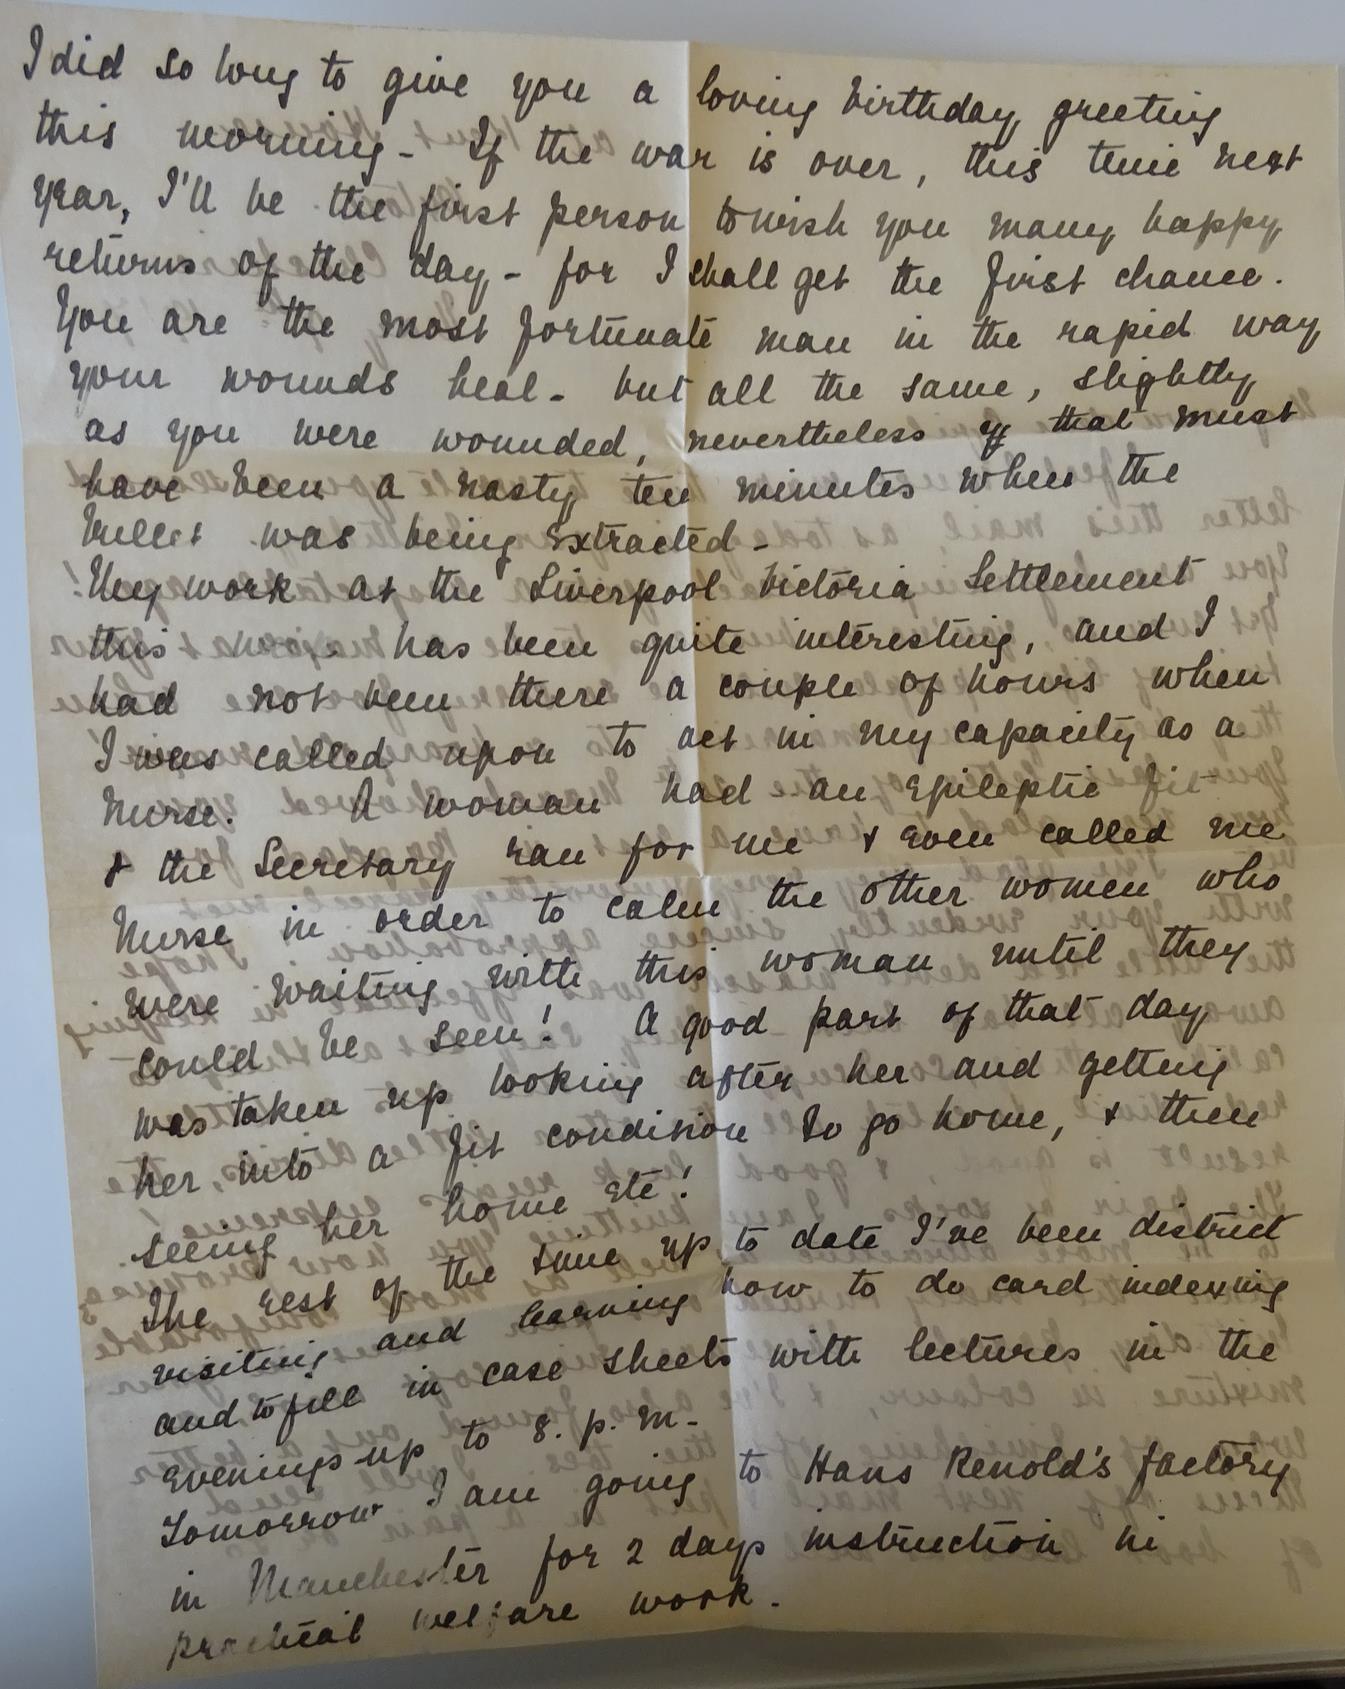 I did so long to give you a loving birthday greeting
this morning - If the war is over, this time next
year, I'll be the first person to wish you many happy
returns of the day - for I shall get the first chance.
You are the most fortunate man in the rapid way
your wounds heal - but all the same, slightly
as you were wounded, nevertheless that must
have been a nasty ten minutes when the
bullet was being extracted -
My work at the Liverpool Victoria Settlement
this has been quite interesting, and I
had not been there a couple of hours when
I was called upon to act in my capacity as a
Nurse. A woman had an epileptic fit
& the Secretary ran for me & even called me
Nurse in order to calm the other women who
were waiting with this woman until they
could be seen! A good part of that day
was taken up looking after her and getting
her into a fit condition to go home, & then
seeing her home etc!
The rest of the time up to date I've been district
visiting and learning how to do card indexing
and to fill in case sheets with lectures in the
evenings up to 8. p.m -
Tomorrow I am going to Hans Renold's factory
in Manchester for 2 days instruction in
practical welfare work.